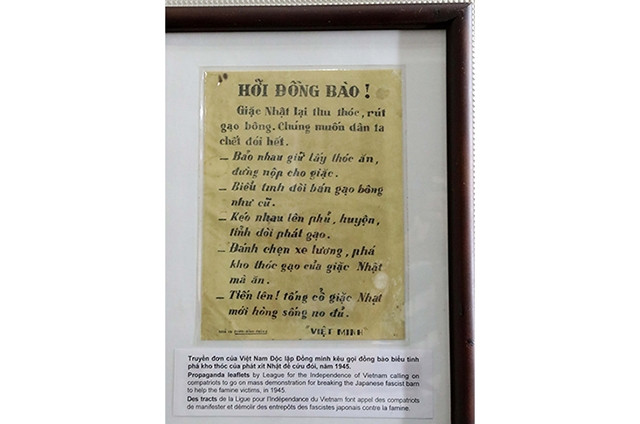 HỠI ĐỒNG BÀO !
Giặc Nhật lại thu thóc, rút
gạo bông. Chúng muốn dân ta
chết đói hết.
— Bảo nhau giữ lấy thóc ăn,
đừng nộp cho giặc.
— Biểu tình đòi bán gạo bông
như cũ.
— Kéo nhau lên phủ, huyện,
tỉnh đòi phát gạo.
— Đánh chẹn xe lương, phá
kho thóc gạo của giặc Nhật
mà ăn.
— Tiến lên! tống cổ giặc Nhật
mới hòng sống no đủ.
"VIỆT MINH"
Truyền đơn của Việt Nam Độc lập Đồng minh kêu gọi đồng bào biểu tình
phá kho thóc của phát xít Nhật để cứu đói, năm 1945.
Propaganda leaflets by League for the Independence of Vietnam calling on
compatriots to go on mass demonstration for breaking the Japanese fascist barn
to help the famine victims, in 1945.
Des tracts de la Ligue pour l'Indépendance du Vietnam font appel des compatriots
de manifester et démolir des entrepôts des fascistes japonais contre la famine.